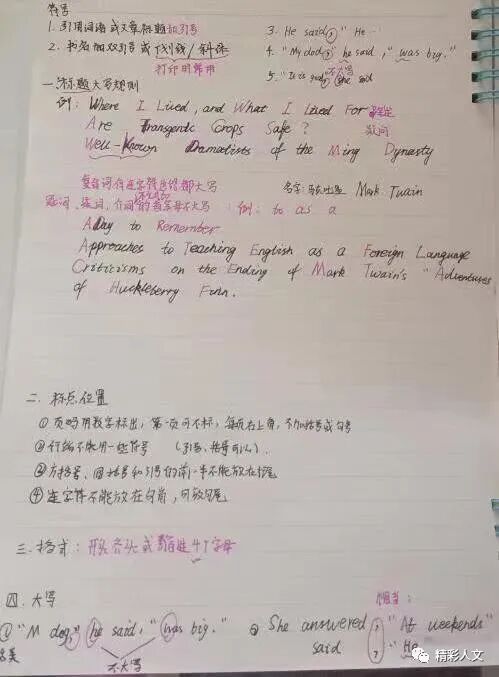 符号
1. 引用词语或文章标题加引号
2. 书名加双引号或下划线/斜体
打印时常用
3. He said, "He
4. "My dog," he said, "was big."
5. "It is good," she said
不大写
一. 标题大写规则
例: Where I Lived, and What I Lived For
Are Transgenic Crops Safe? 疑问
Well-Known Dramatists of the Ming Dynasty
复合词有连字符后都大写
名字: Mark Twain
冠词、连词、介词的首字母不大写: 例: to as a
A Day to Remember
Approaches to Teaching English as a Foreign Language
Criticisms on the Ending of Mark Twain's "Adventures
of Huckleberry Finn.
二. 标点位置
① 页码用数字标出, 第一页可不标, 每页右上角, 不加括号或句号
② 行编不能用一些符号 (引号、括号可以).
③ 方括号、圆括号和引号的前一半不能放在行尾
④ 连字符不能放在句首, 可放句尾
三. 格式: 开头齐头或缩进4个字母
四. 大写
① "M dog," he said, "was big."
不大写
② She answered, "At weekends"
said : "He
精彩人文